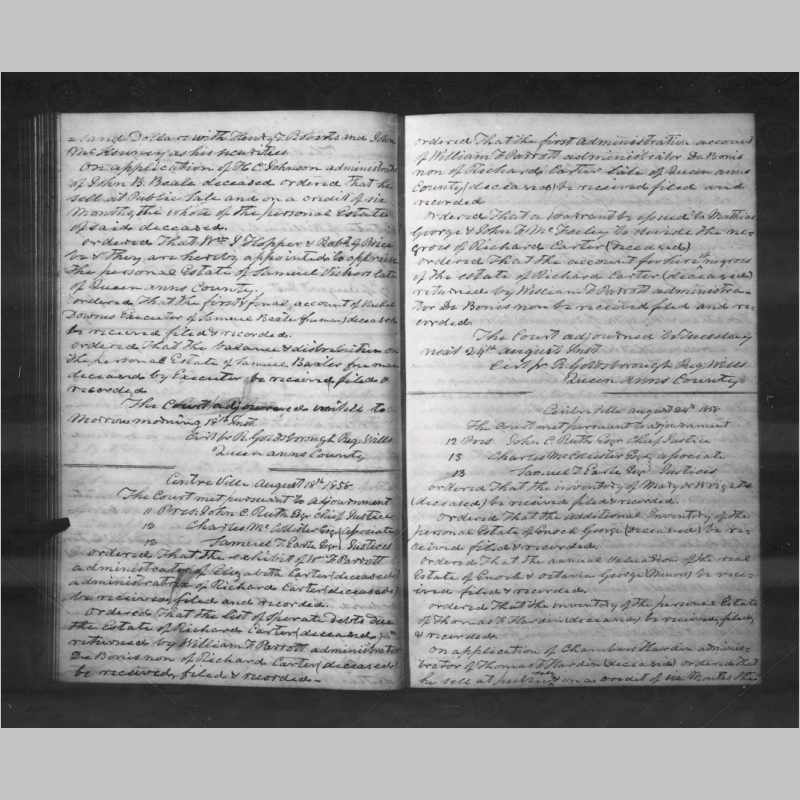 =sand Dollars with Henry F Roberts and John
as his securities
On application of H C Johnson administrator
of John B. Beale deceased ordered that he
sell at Public Sale and on a credit of six
Months, the whole of the personal Estate
of said deceased.
ordered That Wm J Hopper & Robt J Price
be & they are hereby appointed to appraise
the personal Estate of Samuel late
of Queen Anns County.
ordered that the first & final account of
Downes Executor of Samuel Beale (freeman) deceased
be received filed & recorded.
ordered That the balance & distribution on
the personal Estate of Samuel Bealee free man
deceased by Executor be received, filed &
recorded
The Court adjourned untill to
Morrow morning 18th Inst
Cert pr R. Goldsborough Reg. Wills
Queen Anns County
Centre Ville August 18th 1858
The Court met pursuant to adjournment
11 Pres. John C. Ruth Esqr Chief Justice
12 Charles McCollister Esq (associate
12 Samuel T. Earle Esqr Justices
ordered That the exhibit of Wm F Parrott
administrator of Elizabeth Carter (deceased)
administratrix of Richard Carter (deceased)
be received, filed and recorded.
Ordered That the list of Sperate Debts Due
the Estate of Richard Carter (deceased
returned by William F Parrott administrator
De Bonis non of Richard Carter (deceased)
be received, filed & recorded-
ordered That the first administration account
of William F Parrott administrator De Bonis
non of Richard Carter late of Queen anns
County (deceased) be received filed and
recorded
ordered That a warrant be issued to Matthias
George & John McFeeley to divide the ne-
groes of Richard Carter (deceased)
ordered That the account for hire of negroes
of the estate of Richard Carter (deceased)
returned by William F Parrott administra-
tor De Bonis non be received filed and re-
corded.
The Court adjourned to Tuesday
next 24th august Inst
Cert pr R. Goldsborough Reg Wills
Queen Anns County
Centre Ville august 24th 1858
The Court met pursuant to adjournment
12 Pres. John C. Ruth Esqr Chief Justice
13 Charles McCollister Esq associate
13 Samuel T. Earle Esqr Justices
ordered That the inventory of Mary Wright
(deceased) be received filed & recorded.
Ordered That the additional Inventory of the
personal Estate of Enoch George (deceased) be re-
ceived filed & recorded.
ordered That the annual valuation of the real
Estate of Enoch & Octavia George (Minors) be rece-
ived filed & recorded.
ordered That the inventory of the personal Estate
of Thomas H Hardin (deceased) be received, filed,
& recorded.
On application of Chambers Hardin adminis-
trator of Thomas H Hardin (deceased) ordered that
he sell at public sale on a credit of six Months the